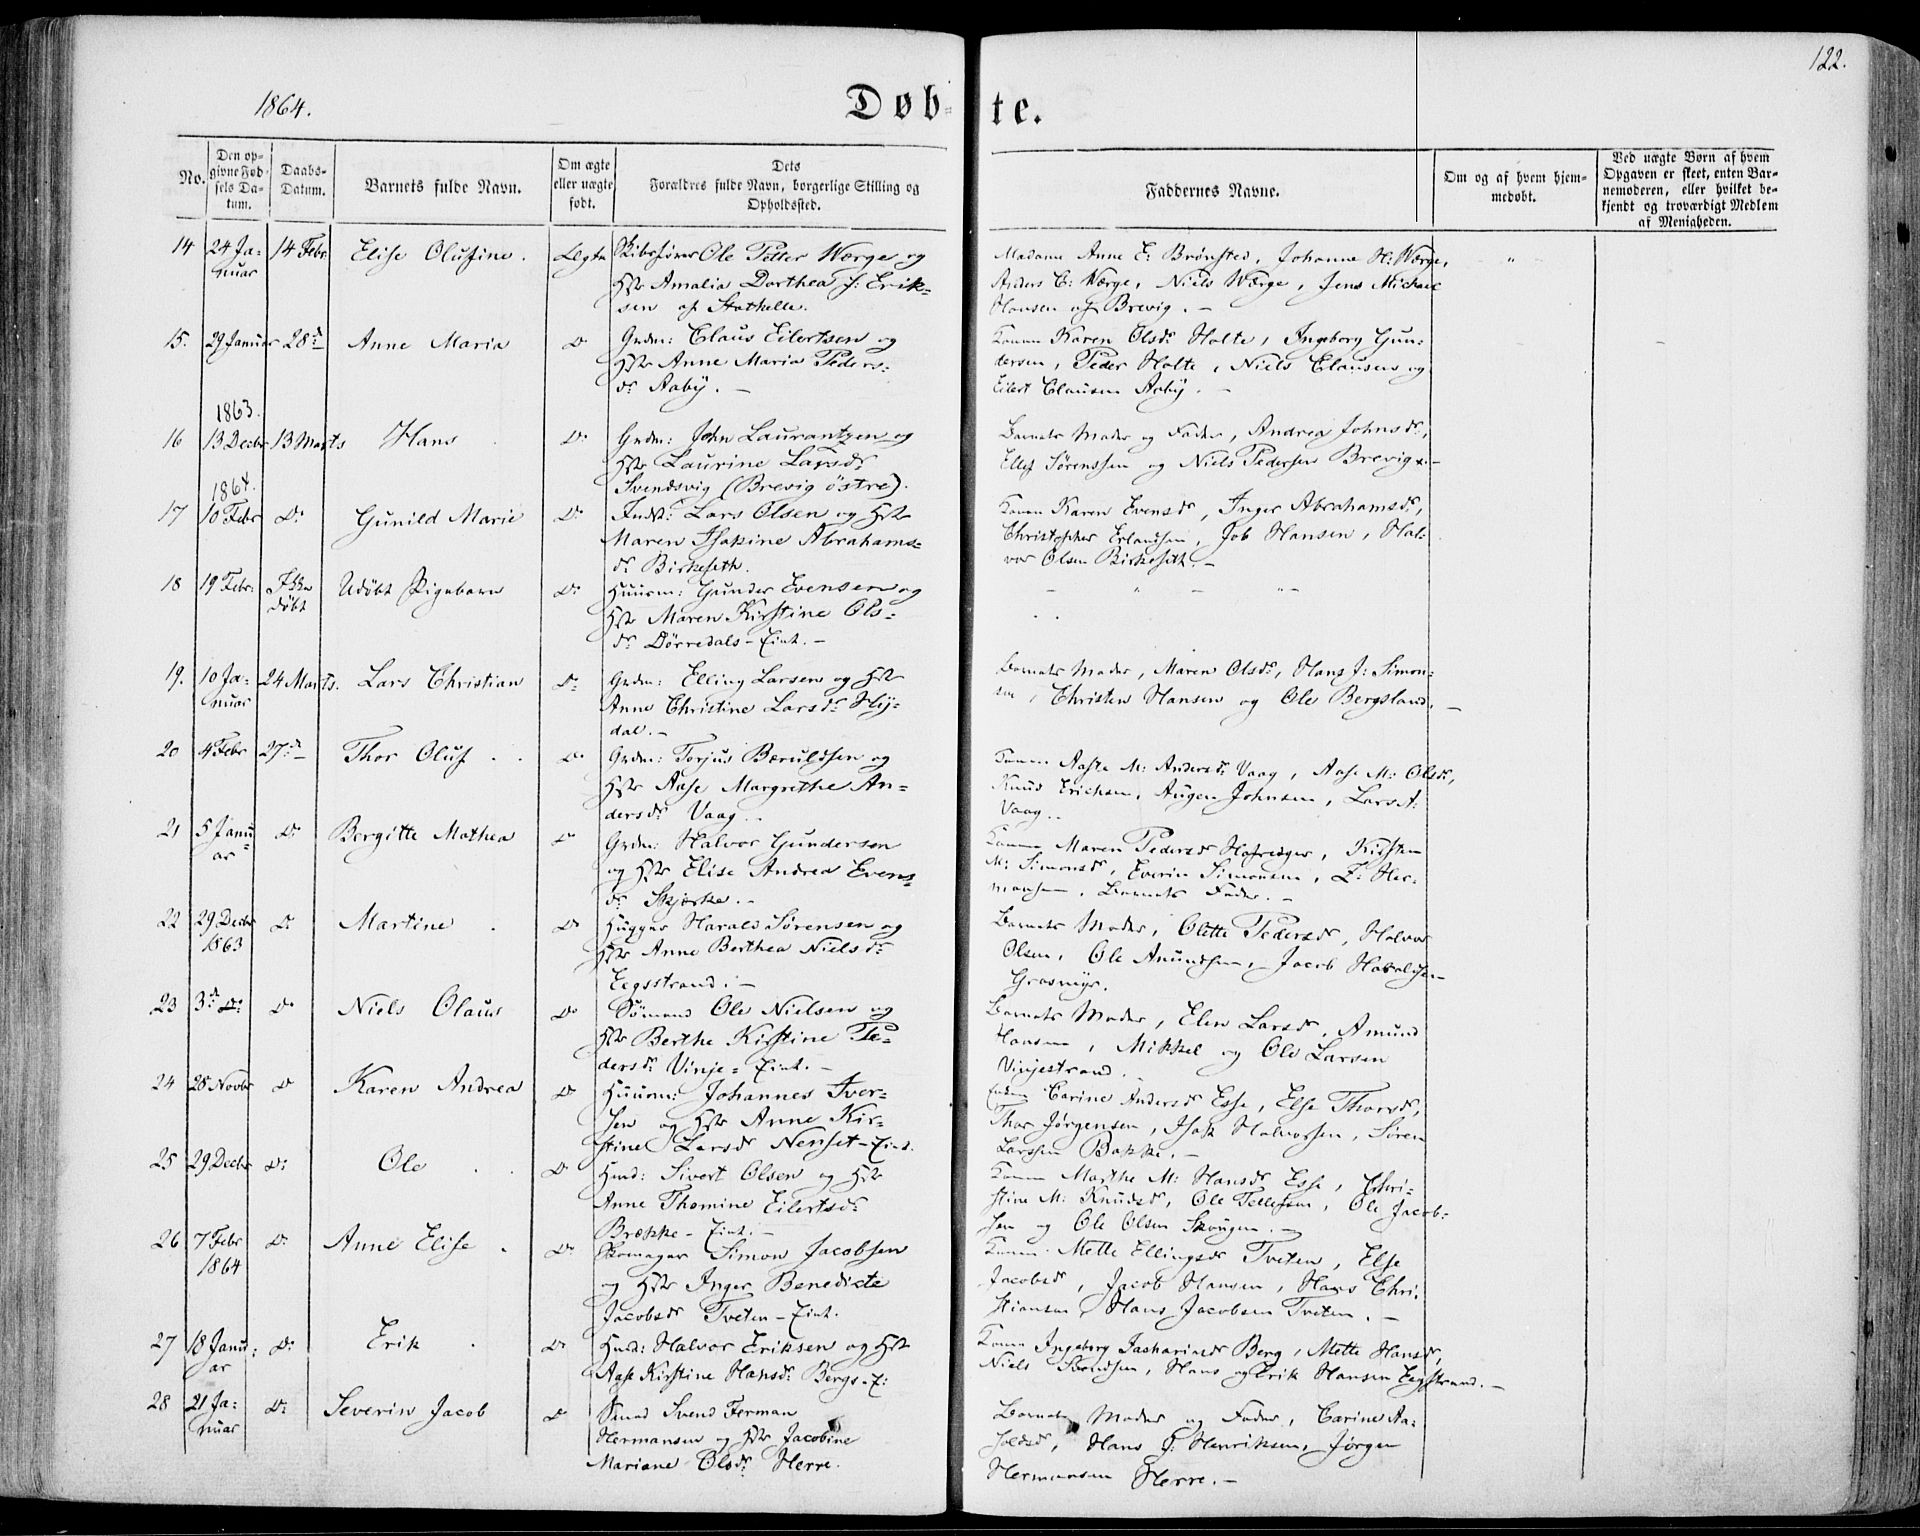 122.
1864.
Døb-te.
No.
Den opgivne Fødsels Datum.
Daabs-Datum.
Barnets fulde Navn.
Om ægte eller uægte født.
Dets Forældres fulde Navn, borgerlige Stilling og Opholdssted.
Faddernes Navne.
Om og af hvem hjemmedøbt.
Ved uægte Børn af hvem Opgaven er skeet, enten Barnemoderen, eller hvilket bekjendt og troværdigt Medlem af Menigheden.
14 24 Januar 14 Febr. Elise Olufine. Ægte Skibsfører Ole Petter Wærge og
Hstr Amalia Dorthea f: Erik-
sen af Stathelle.
Madame Anne E. Brønsted, Johanne H: Wærge,
Anders C: Wærge, Niels Wærge, Jens Michael
Hansen af Brevig. –
15. 29 Januar 28de Anne Maria Do Grdm: Claus Eilertsen og
Hstr Anne Maria Peders-
dr Aaby. –
Konen Karen Olsdr Holte, Ingeborg Gun-
dersen, Peder Holte, Niels Clausen og
Eilert Clausen Aaby. –
1863.
16 13 Decbr 13 Marts Hans Do Grdm: John Laurantzen og
Hstr Laurine Larsdr
Svendsvig (Brevig östre).
Barnets Moder og Fader, Andrea Johnsdr,
Ellef Sørenssen og Niels Pedersen Brevig
1864.
17 10 Febr Do Gunild Marie Do Indst: Lars Olsen og Hstr
Maren Isakine Abrahams-
dr Birkeseth.
Konen Karen Evensdr, Inger Abrahamsdr,
Christopher Erlandsen, Job Hansen, Hal-
vor Olsen Birkeseth. –
18 19 Febr: Ikke døbt Udöbt Pigebarn Do Huusm: Gunder Evensen og
Hstr Maren Kirstine Ols-
dr Dørredals-Eint. –
19. 10 Januar 24 Marts. Lars Christian Do Grdm: Elling Larsen og Hstr
Anne Christine Larsdr Hÿ-
dal. –
Barnets Moder, Maren Olsdr, Hans J: Simon-
sen, Christen Hansen og Ole Bergsland. –
20 4 Febr 27de Thor Oluf Do Grdm: Torjus Bæruldsen og
Hstr Aase Margrethe An-
dersdr Vaag.
Konen Aaste M: Andersdr Vaag, Aase M: Olsdr,
Knud Erichsen, Augen Johnsen, Lars A:
Vaag.
21 5 Januar Do Bergitte Mathea Do Grdm: Halvor Gundersen
og Hstr Elise Andrea Evens-
dr Skjerke. –
Konen Maren Pedersdr, Kirsten
M: Simonsdr, Everin Simonsen, L: Her-
mansen, Barnets Fader. –
22 29 Decbr 1863 Do Martine Do Hugger Harald Sørensen og
Hstr Anne Berthea Nielsdr
Eegsstrand. –
Barnets Moder, Olette Pedersdr, Halvor
Olsen, Ole Amundsen, Jacob Haraldsen
Grasmyr.
23 3de Do Do Niels Olaus Do Sömand Ole Nielsen og
Hstr Berthe Kirstine Pe-
dersdr Vinje-Eint. –
Barnets Moder, Elen Larsdr, Amund
Hansen, Mikkel og Ole Larsen
Vinjestrand.
24 28 Novbr Do Karen Andrea Do Huusm: Johannes Iver-
sen og Hstr Anne Kir-
stine Larsdr Nenset-Eint.
Carine Andersdr Esse, Else Thorsdr,
Thor Jørgensen, Isak Halvorsen, Sören
Larssen Bakke. –
25 29 Decbr Do Ole Do Husd: Sivert Olsen og Hstr
Anne Thomine Eilertsdr
Brække-Eint. –
Konen Marthe M: Hansdr Esse, Chri-
stine M: Knudsdr, Ole Tellefsen, Ole Jacob-
sen og Ole Olsen Skougen. –
26 7 Febr 1864 Do Anne Elise Do Skomager Simon Jacobsen
og Hstr Inger Benedicte
Jacobsdr Tveten-Eint.
Konen Mette Ellingsdr Tveten, Else
Jacobsdr, Jacob Hansen, Hans Chri-
stiansen, Hans Jacobsen Tveten. –
27 18 Januar Do Erik Do Husd: Halvor Eriksen og Hstr
Aase Kirstine Hansdr Bergs-E:
Konen Ingeborg Zachariasdr Berg, Mette Hansdr,
Niels Svendsen, Hans og Erik Hansen Eegstrand. –
28 21 Januar Do Severin Jacob Do Smed Svend Ferman
Hermansen og Hstr Jacobine
Mariane Olsdr Herre.
Barnets Moder og Fader, Carine Aa-
soldsdr, Hans J: Henriksen, Jørgen
Hermansen Herre. –